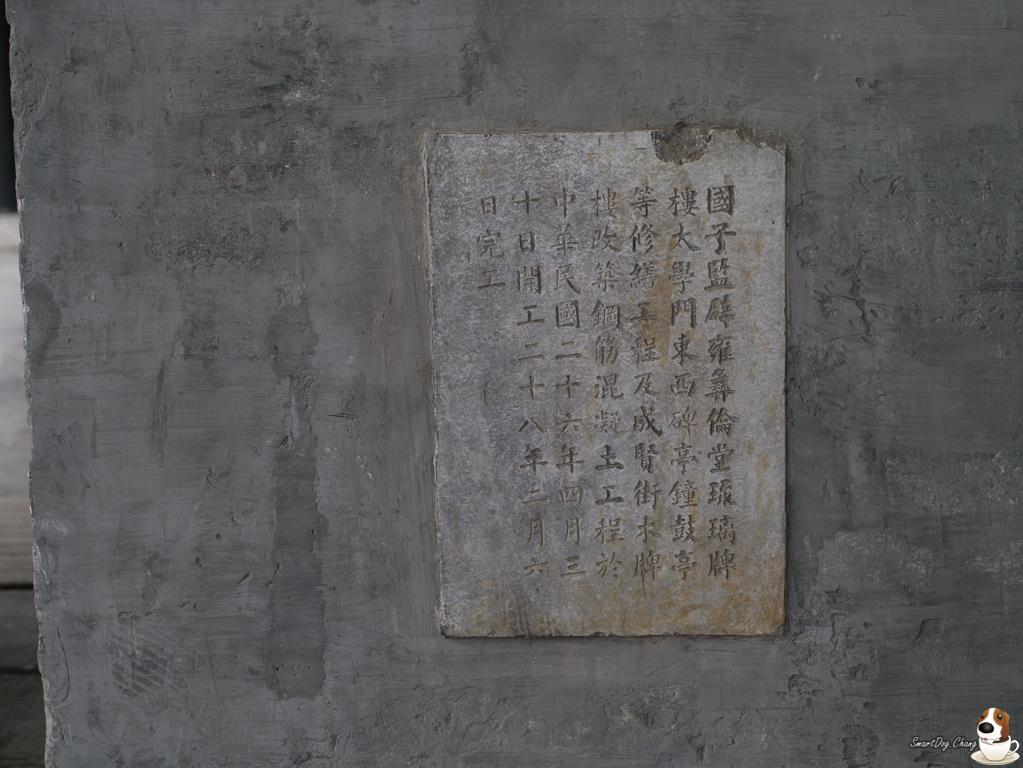 國子監辟雍彝倫堂琉璃牌
樓太學門東西碑亭鐘鼓亭
等修繕工程及成賢街木牌
樓改築鋼筋混凝土工程於
中華民國二十六年四月三
十日開工二十八年二月六
日完工
SmartDog.Chang